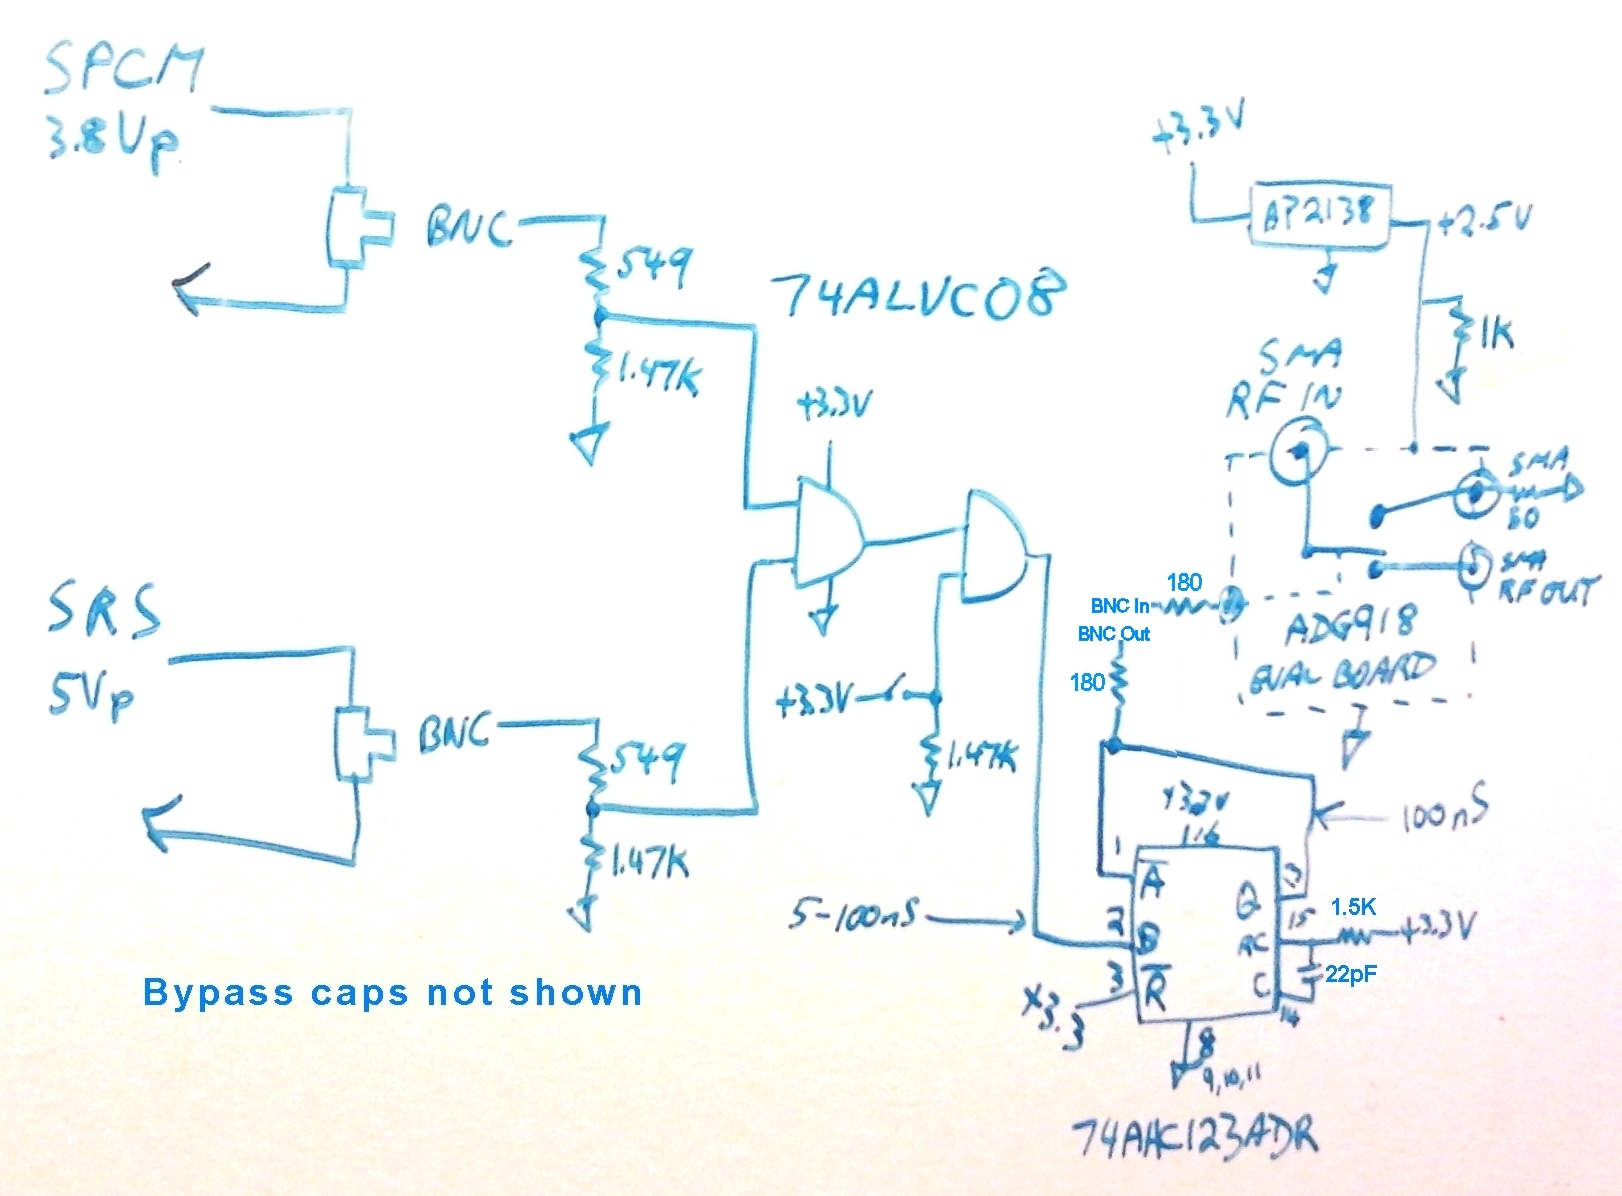 SPCM
3.8Vp
BNC
549
1.47K
74ALVC08
+3.3V
+3.3V
AP2138
+2.5V
1K
SMA
RF IN
SMA
50
SMA
RF OUT
180
BNC In
BNC Out
180
ADG918
EVAL BOARD
SRS
5Vp
BNC
549
1.47K
+3.3V
1.47K
100nS
5-100nS
1
16
A
2
B
3
R
+3.3
Q
13
RC
15
C
14
1.5K
+3.3V
22pF
8
9,10,11
74AHC123ADR
Bypass caps not shown